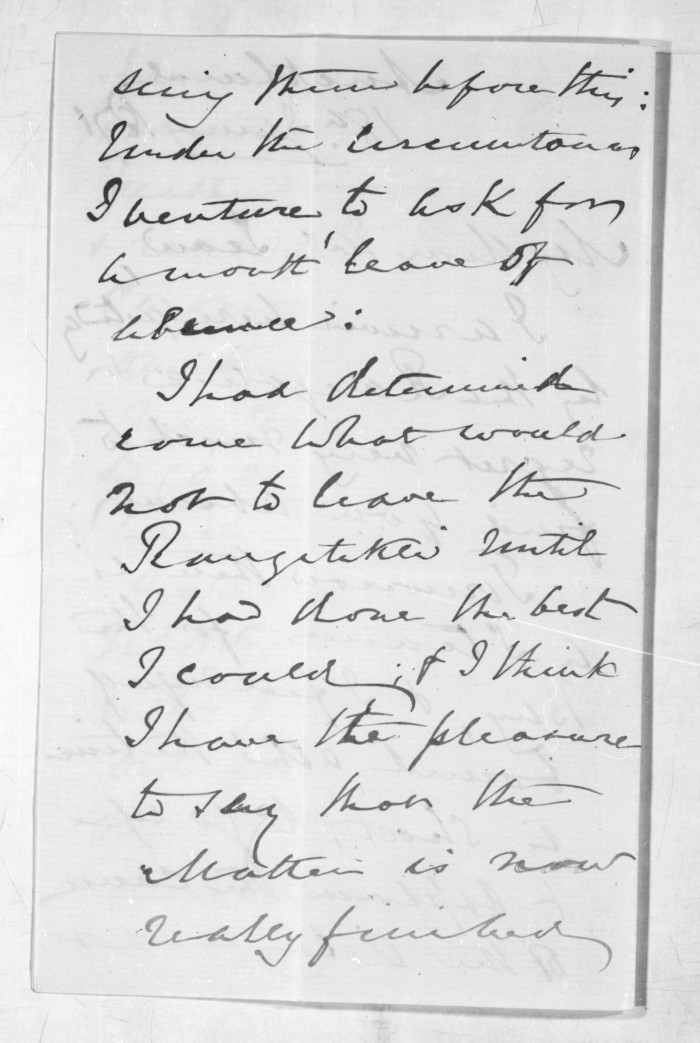 seing them before this:
Under the Circumstances
I venture to ask for
a month' leave of
absence:
I had determined
come what would
not to leave the
Rangitikei until
I had done the best
I could; & I think
I have the pleasure
to say that the
Matter is now
really finished